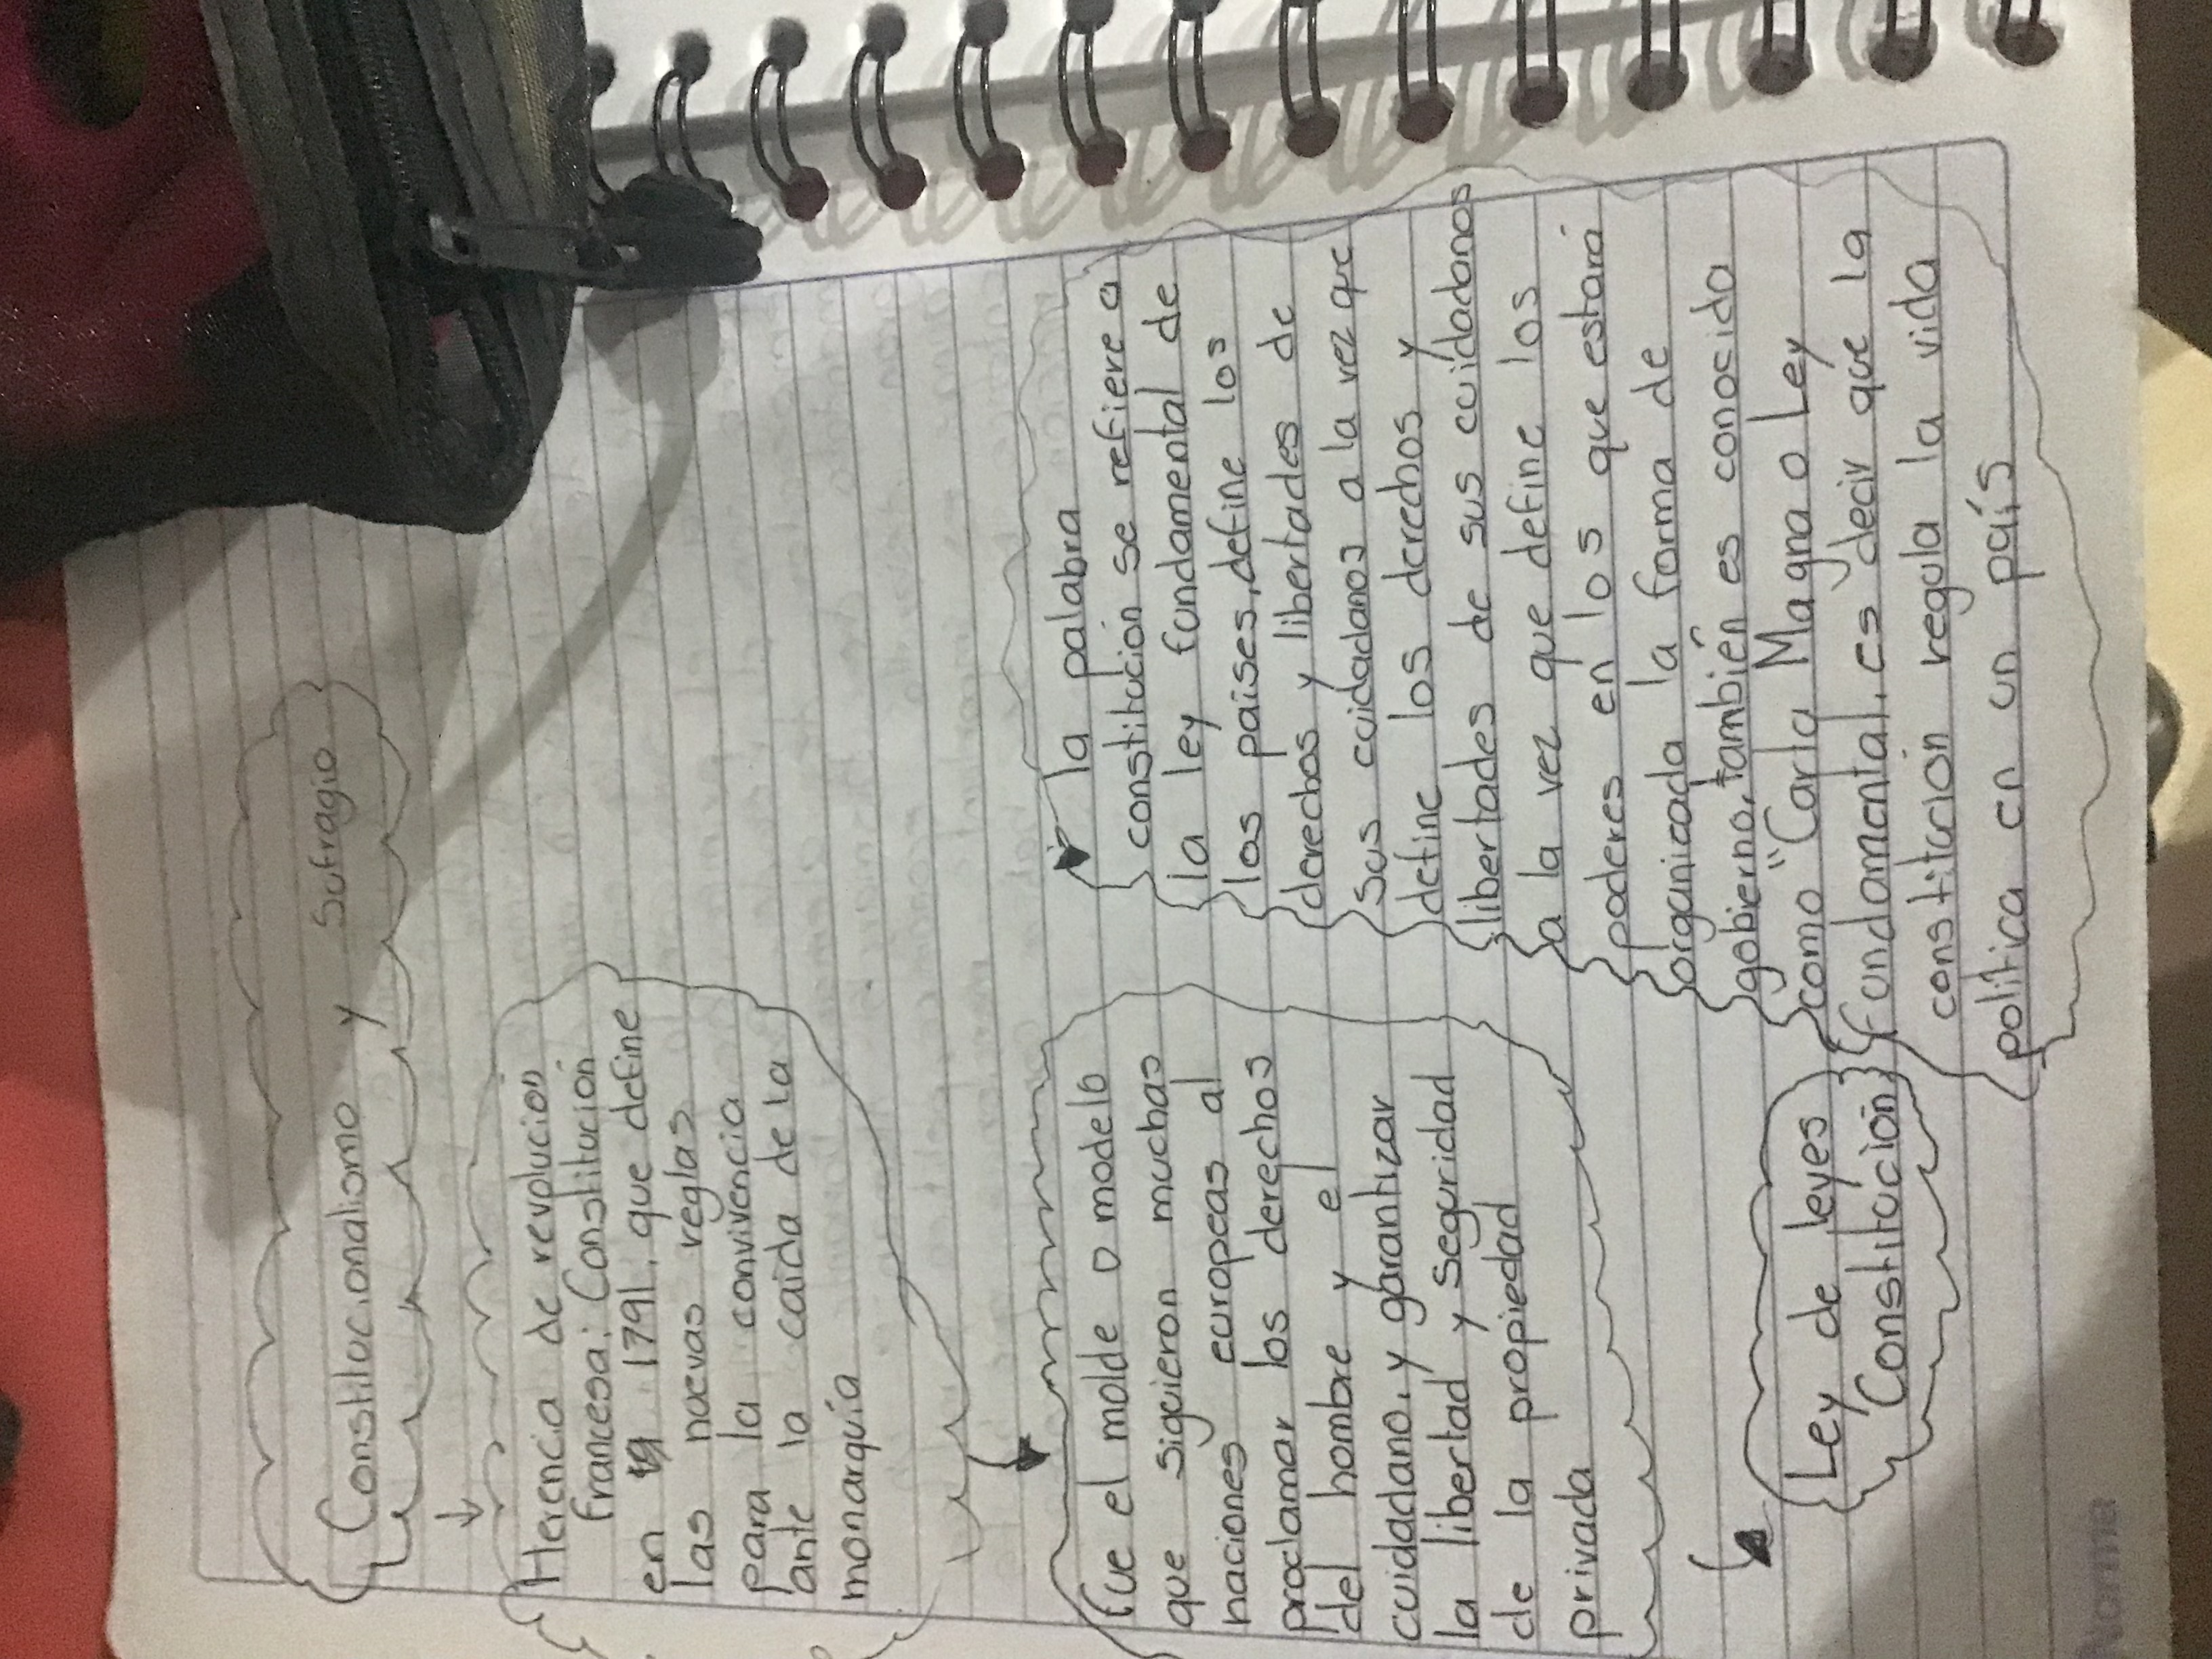 Constitucionalismo y Sufragio
Herencia de revolución
francesa: Constitución
en 1791, que define
las nuevas reglas
para la convivencia
ante la caída de la
monarquía
Fue el molde o modelo
que siguieron muchas
naciones europeas al
proclamar los derechos
del hombre y el
cuidadano, y garantizar
la libertad y seguridad
de la propiedad
privada
Ley de leyes
Constitución
la palabra
constitución se refiere a
la ley fundamental de
los países, define los
derechos y libertades de
sus cuidadanos a la vez que
define los derechos y
libertades de sus cuidadanos
a la vez que define los
poderes en los que estará
organizada la forma de
gobierno, también es conosido
como "Carta Magna o Ley
fundamental, es decir que la
constitución regula la vida
política en un país
Norma